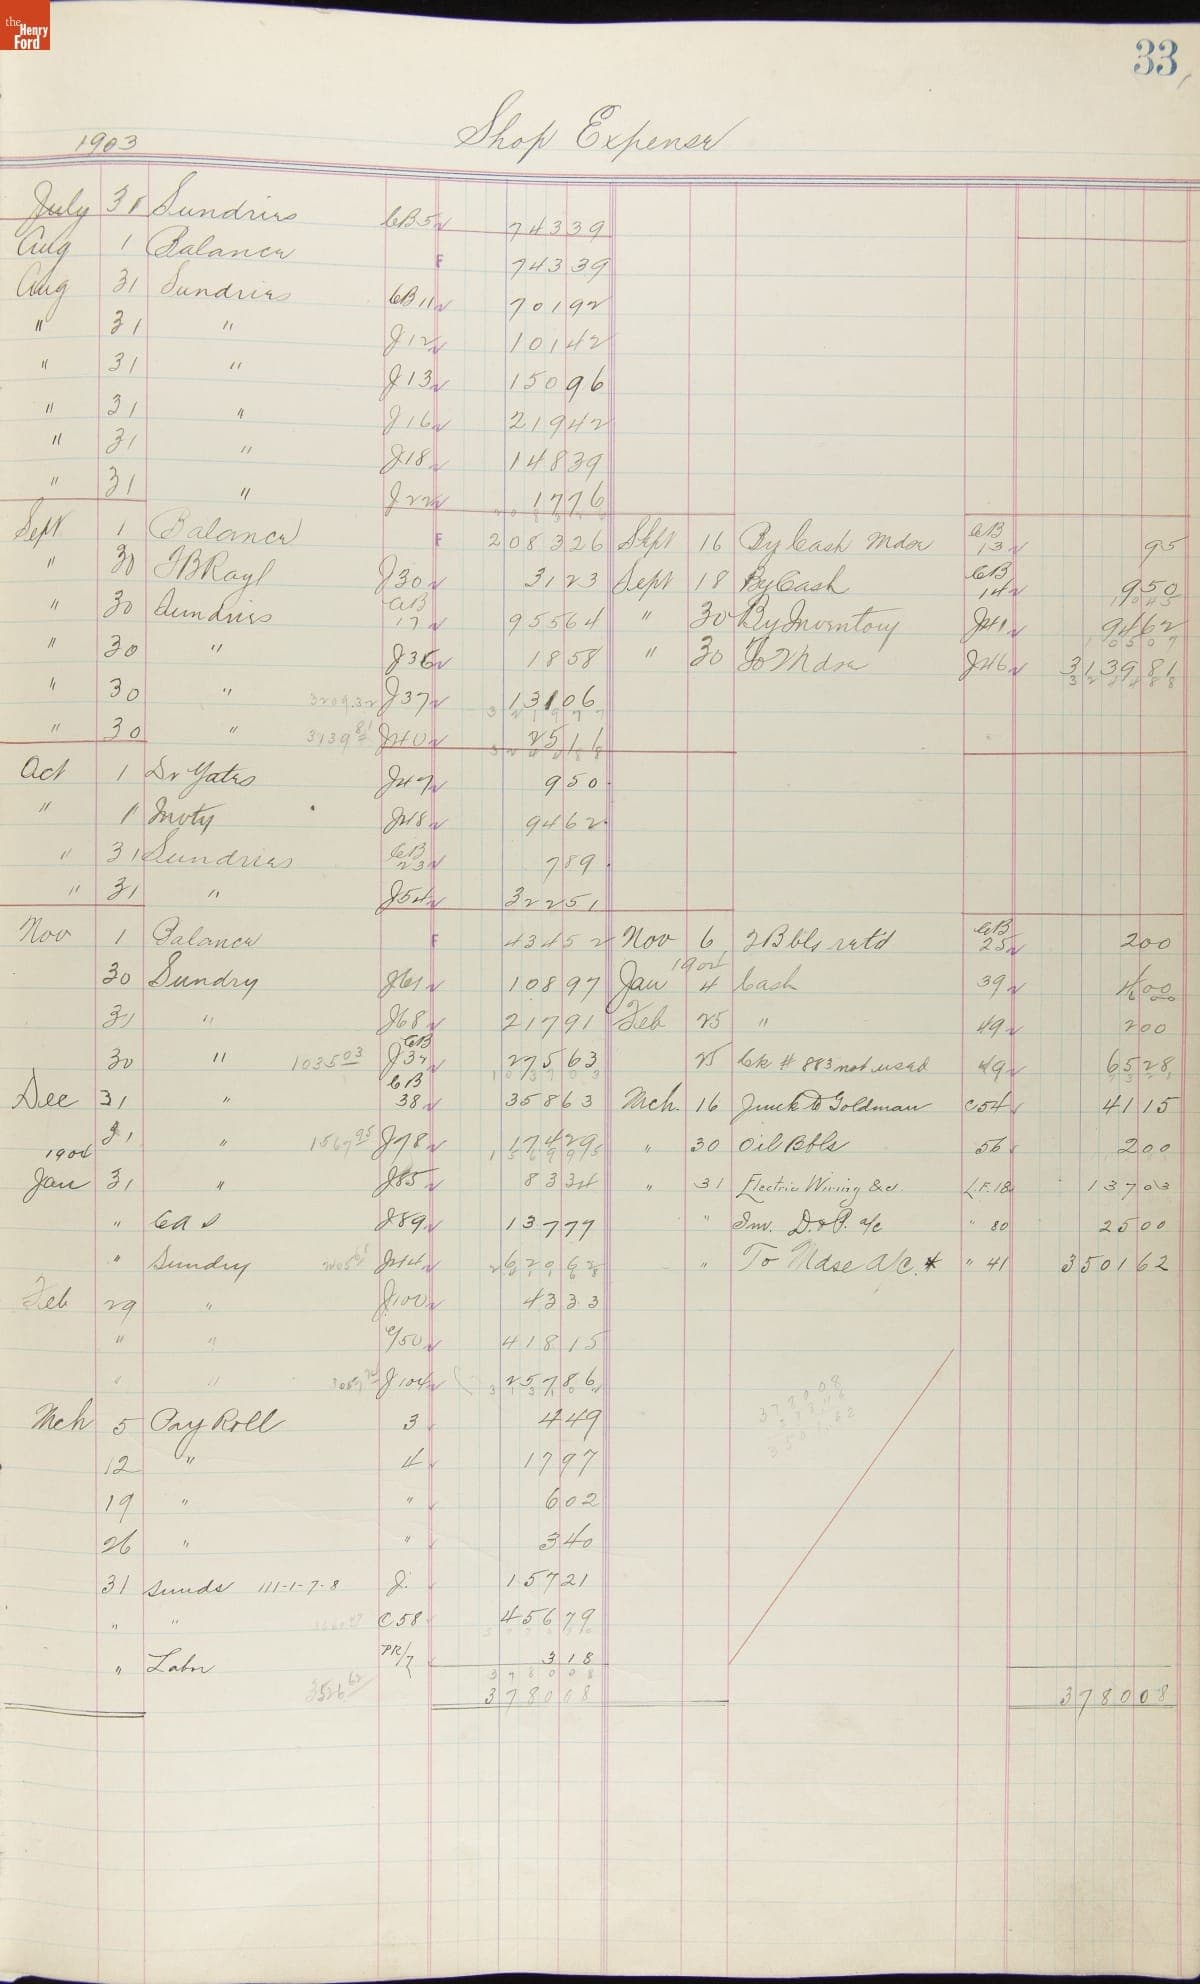 the Henry Ford
33
1903 Shop Expense
July 31 Sundries CB5 743 39
Aug 1 Balance F 743 39
Aug 31 Sundries CB11 701 92
" 31 " J12 101 42
" 31 " J13 150 96
" 31 " J16 219 42
" 31 " J18 148 39
" 31 " J22 17 76
Sept 1 Balance F 2083 26 Sept 16 By Cash Mdse CB 13 95
" 30 TB Rayl J30 31 23 Sept 18 By Cash CB 14 9 50
" 30 Sundries CB 17 955 64 " 30 By Inventory J41 94 62
" 30 " J36 18 58 " 30 To Mdse J46 3139 81
" 30 " 3209.32 J37 131 06
" 30 " 3139 81 J40 25 11
Oct 1 Dr Yates J47 9 50
" 1 Invty J48 94 62
" 31 Sundries CB 23 7 89
" 31 " J54 322 51
Nov 1 Balance F 434 52 Nov 6 2 Bbls ret'd CB 25 2 00
30 Sundry J61 108 97 Jan 1904 4 Cash 39 00
31 " J68 217 91 Feb 25 " 49 2 00
30 " 1035 03 CB 32 275 63 25 Ck # 883 not used 49 65 28
Dec 31 " CB 38 358 63 Mch. 16 Junk to Goldman C54 41 15
31 " 1567 95 J78 174 29 " 30 Oil Bbls 56 2 00
1904
Jan 31 " J85 83 34 " 31 Electric Wiring &c. L.F.18 137 03
" J89 137 77 " Inv. D.&P. a/c " 80 25 00
" Sundry J94 620 62 " To Mdse A/C. * " 41 3501 62
Feb 29 " J100 43 33
" " C/50 418 15
" " J104 257 86
Mch 5 Pay Roll 3 4 49
12 " 4 17 97
19 " " 6 02
26 " " 3 40
31 Sunds 111-1-7-8 J. 157 21
" " C58 456 79
" Labor PR/7 3 18
3526 62 3780 08 3780 08